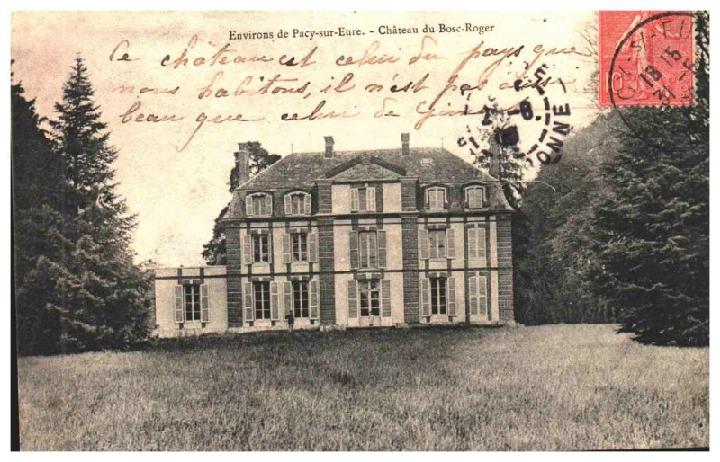 Environs de Pacy-sur-Eure. - Château du Bosc-Roger
Ce château est celui du pays que
nous habitons, il n'est pas aussi
beau que celui de
10
18 15
ONNE